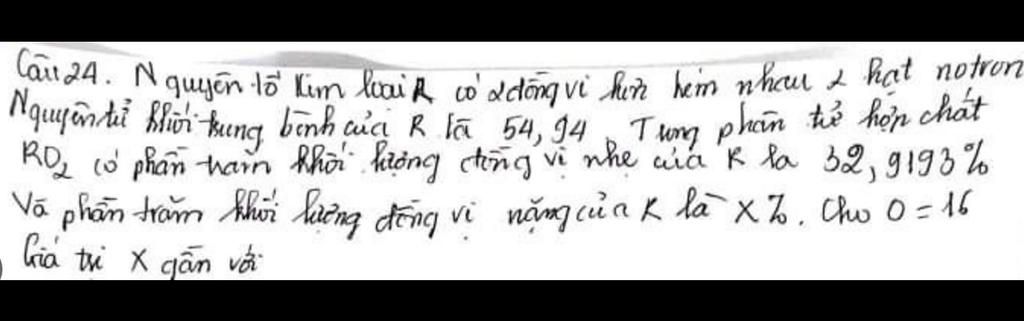 Câu 24. Nguyên tố kim loại R có 2 đồng vị hơn kém nhau 2 hạt notron
Nguyên tử khối trung bình của R là 54,94. Trong phân tử hợp chất
RO₂ có phần trăm khối lượng đồng vị nhẹ của R là 32,9193%
Và phần trăm khối lượng đồng vị nặng của R là X%. Cho O = 16
Giá trị X gần với